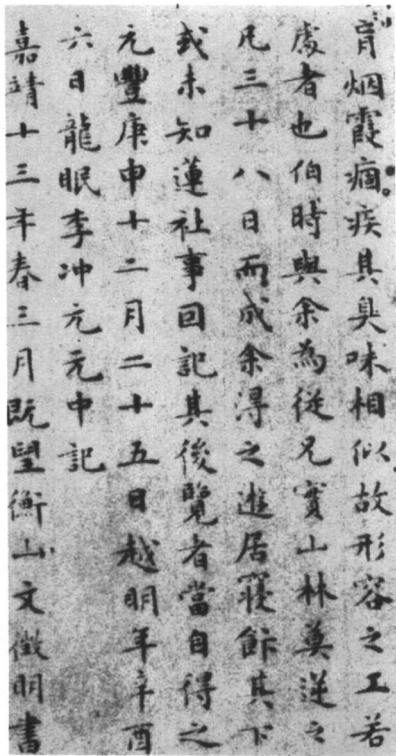 肓烟霞痼疾其臭味相似故形容之工若
處者也伯時與余為従兄實山林莫逆之
凡三十八日而成余淂之遊居寢飰其下
或未知蓮社事囬記其後覽者當自得之
元豐庚申十二月二十五日越明年辛酉
六日龍眠李冲元元中記
嘉靖十三年春三月既望衡山文徵明書